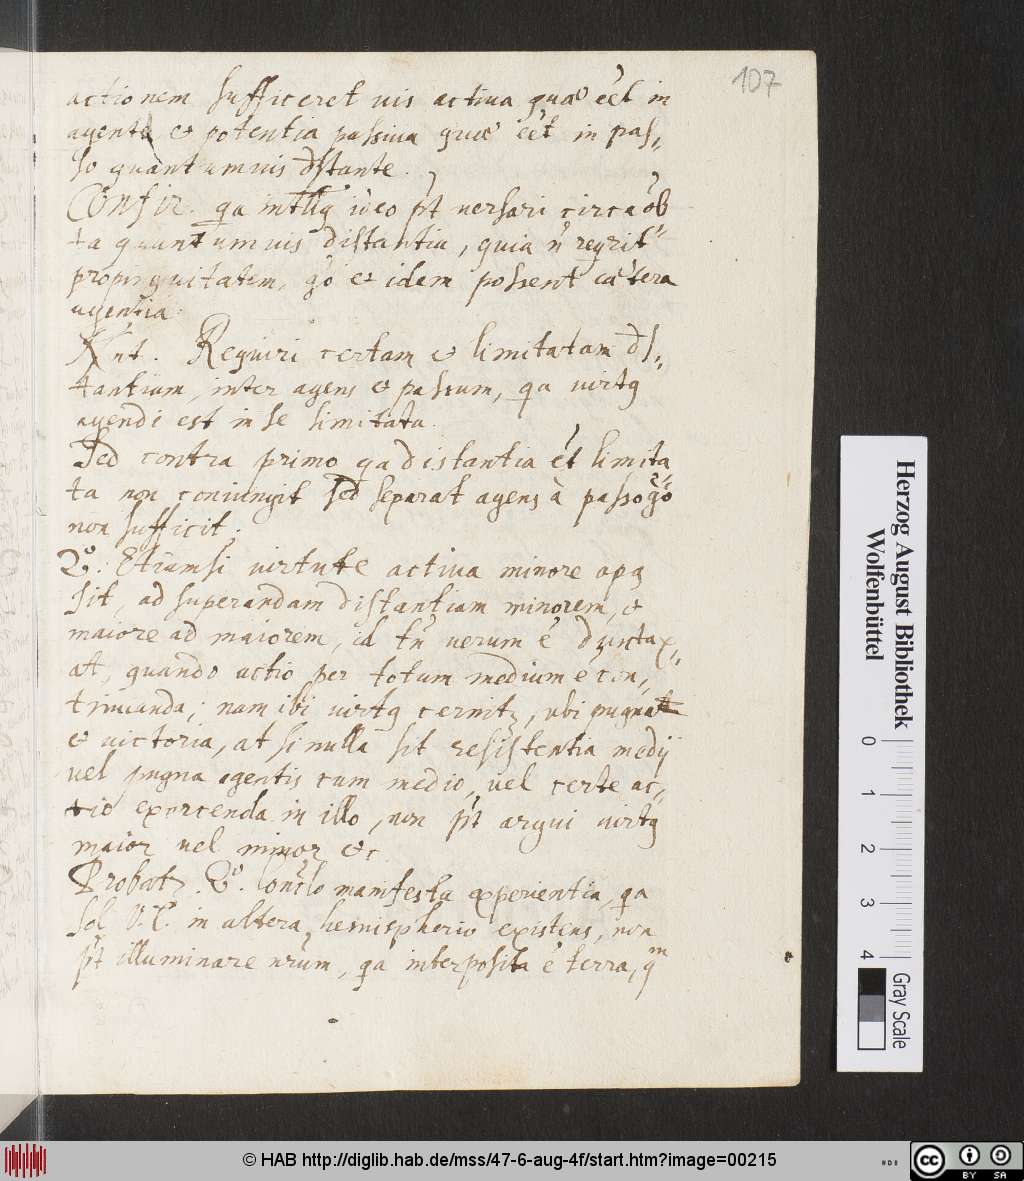 107
actionem sufficeret vis activa quae eēt in
agente & potentia passiva quae eēt in pas,,
so quantumvis dstante.
Confir. qa intllq ideo pt versari circa ob
ta quantumvis distantia, quia n̄ reqrit
propinquitatem, gō & idem possent caetera
agentia.
Requiri certam & limitatam ds,,
tantiam, inter agens & passum, qa virtq
agendi est in se limitata.
Sed contra primo qa distantia ēt limita
ta non coniungit sed separat agens à passo gō
non sufficit.
2º. Etiamsi virtute activa minore opq
sit, ad superandam distantiam minorem, &
maiore ad maiorem, id tn̄ verum ē dūnta
at, quando actio per totum medium ē con,,
tinuanda; nam ibi virtq cernitz, ubi pugnat
& victoria, at si nulla sit resistentia medij
vel pugna agentis cum medio, vel certe ac,,
tio exercenda in illo, non pt argui virtq
maior vel minor &c
Probatr. 2º. Conclo manifesta experientia, qa
sol V. C. in altero hemispherio existens, non
pt illuminare nrum, qa interposita ē terra, qm
Herzog August Bibliothek
Wolfenbüttel
0 1 2 3 4
Gray Scale
© HAB http://diglib.hab.de/mss/47-6-aug-4f/start.htm?image=00215
cc BY SA